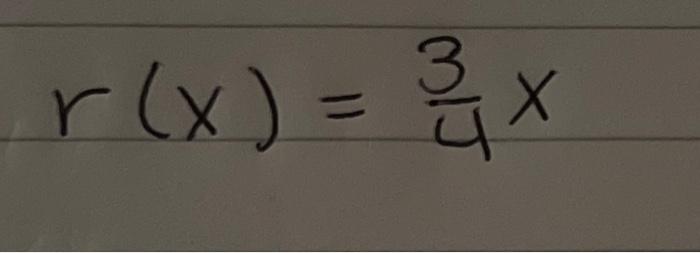 r(x) = 3/4 x